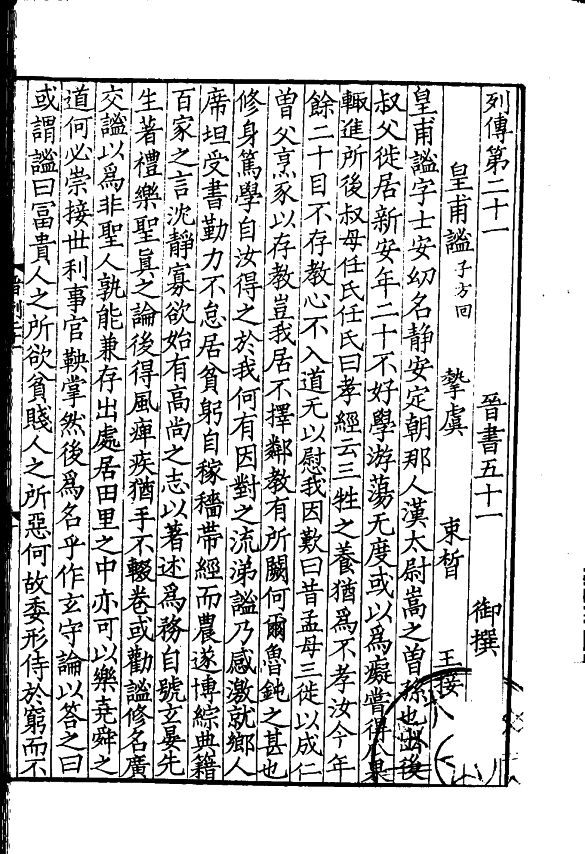 列傳第二十一 晉書五十一 御撰
皇甫謐子方回 摯虞 束晳 王接
皇甫謐字士安幼名静安定朝那人漢太尉嵩之曽孫也出後
叔父徙居新安年二十不好學游蕩无度或以爲癡嘗得瓜果
輙進所後叔母任氏任氏曰孝經云三牲之養猶爲不孝汝今年
餘二十目不存教心不入道无以慰我因歎曰昔孟母三徙以成仁
曽父烹豕以存教豈我居不擇鄰教有所闕何爾魯鈍之甚也
修身篤學自汝得之於我何有因對之流涕謐乃感激就鄉人
席坦受書勤力不怠居貧躬自稼穡帶經而農遂博綜典籍
百家之言沈静寡欲始有高尚之志以著述爲務自號玄晏先
生著禮樂聖真之論後得風痺疾猶手不輟卷或勸謐修名廣
交謐以爲非聖人孰能兼存出處居田里之中亦可以樂堯舜之
道何必崇接世利事官鞅掌然後爲名乎作玄守論以答之曰
或謂謐曰冨貴人之所欲貧賤人之所惡何故委形侍於窮而不